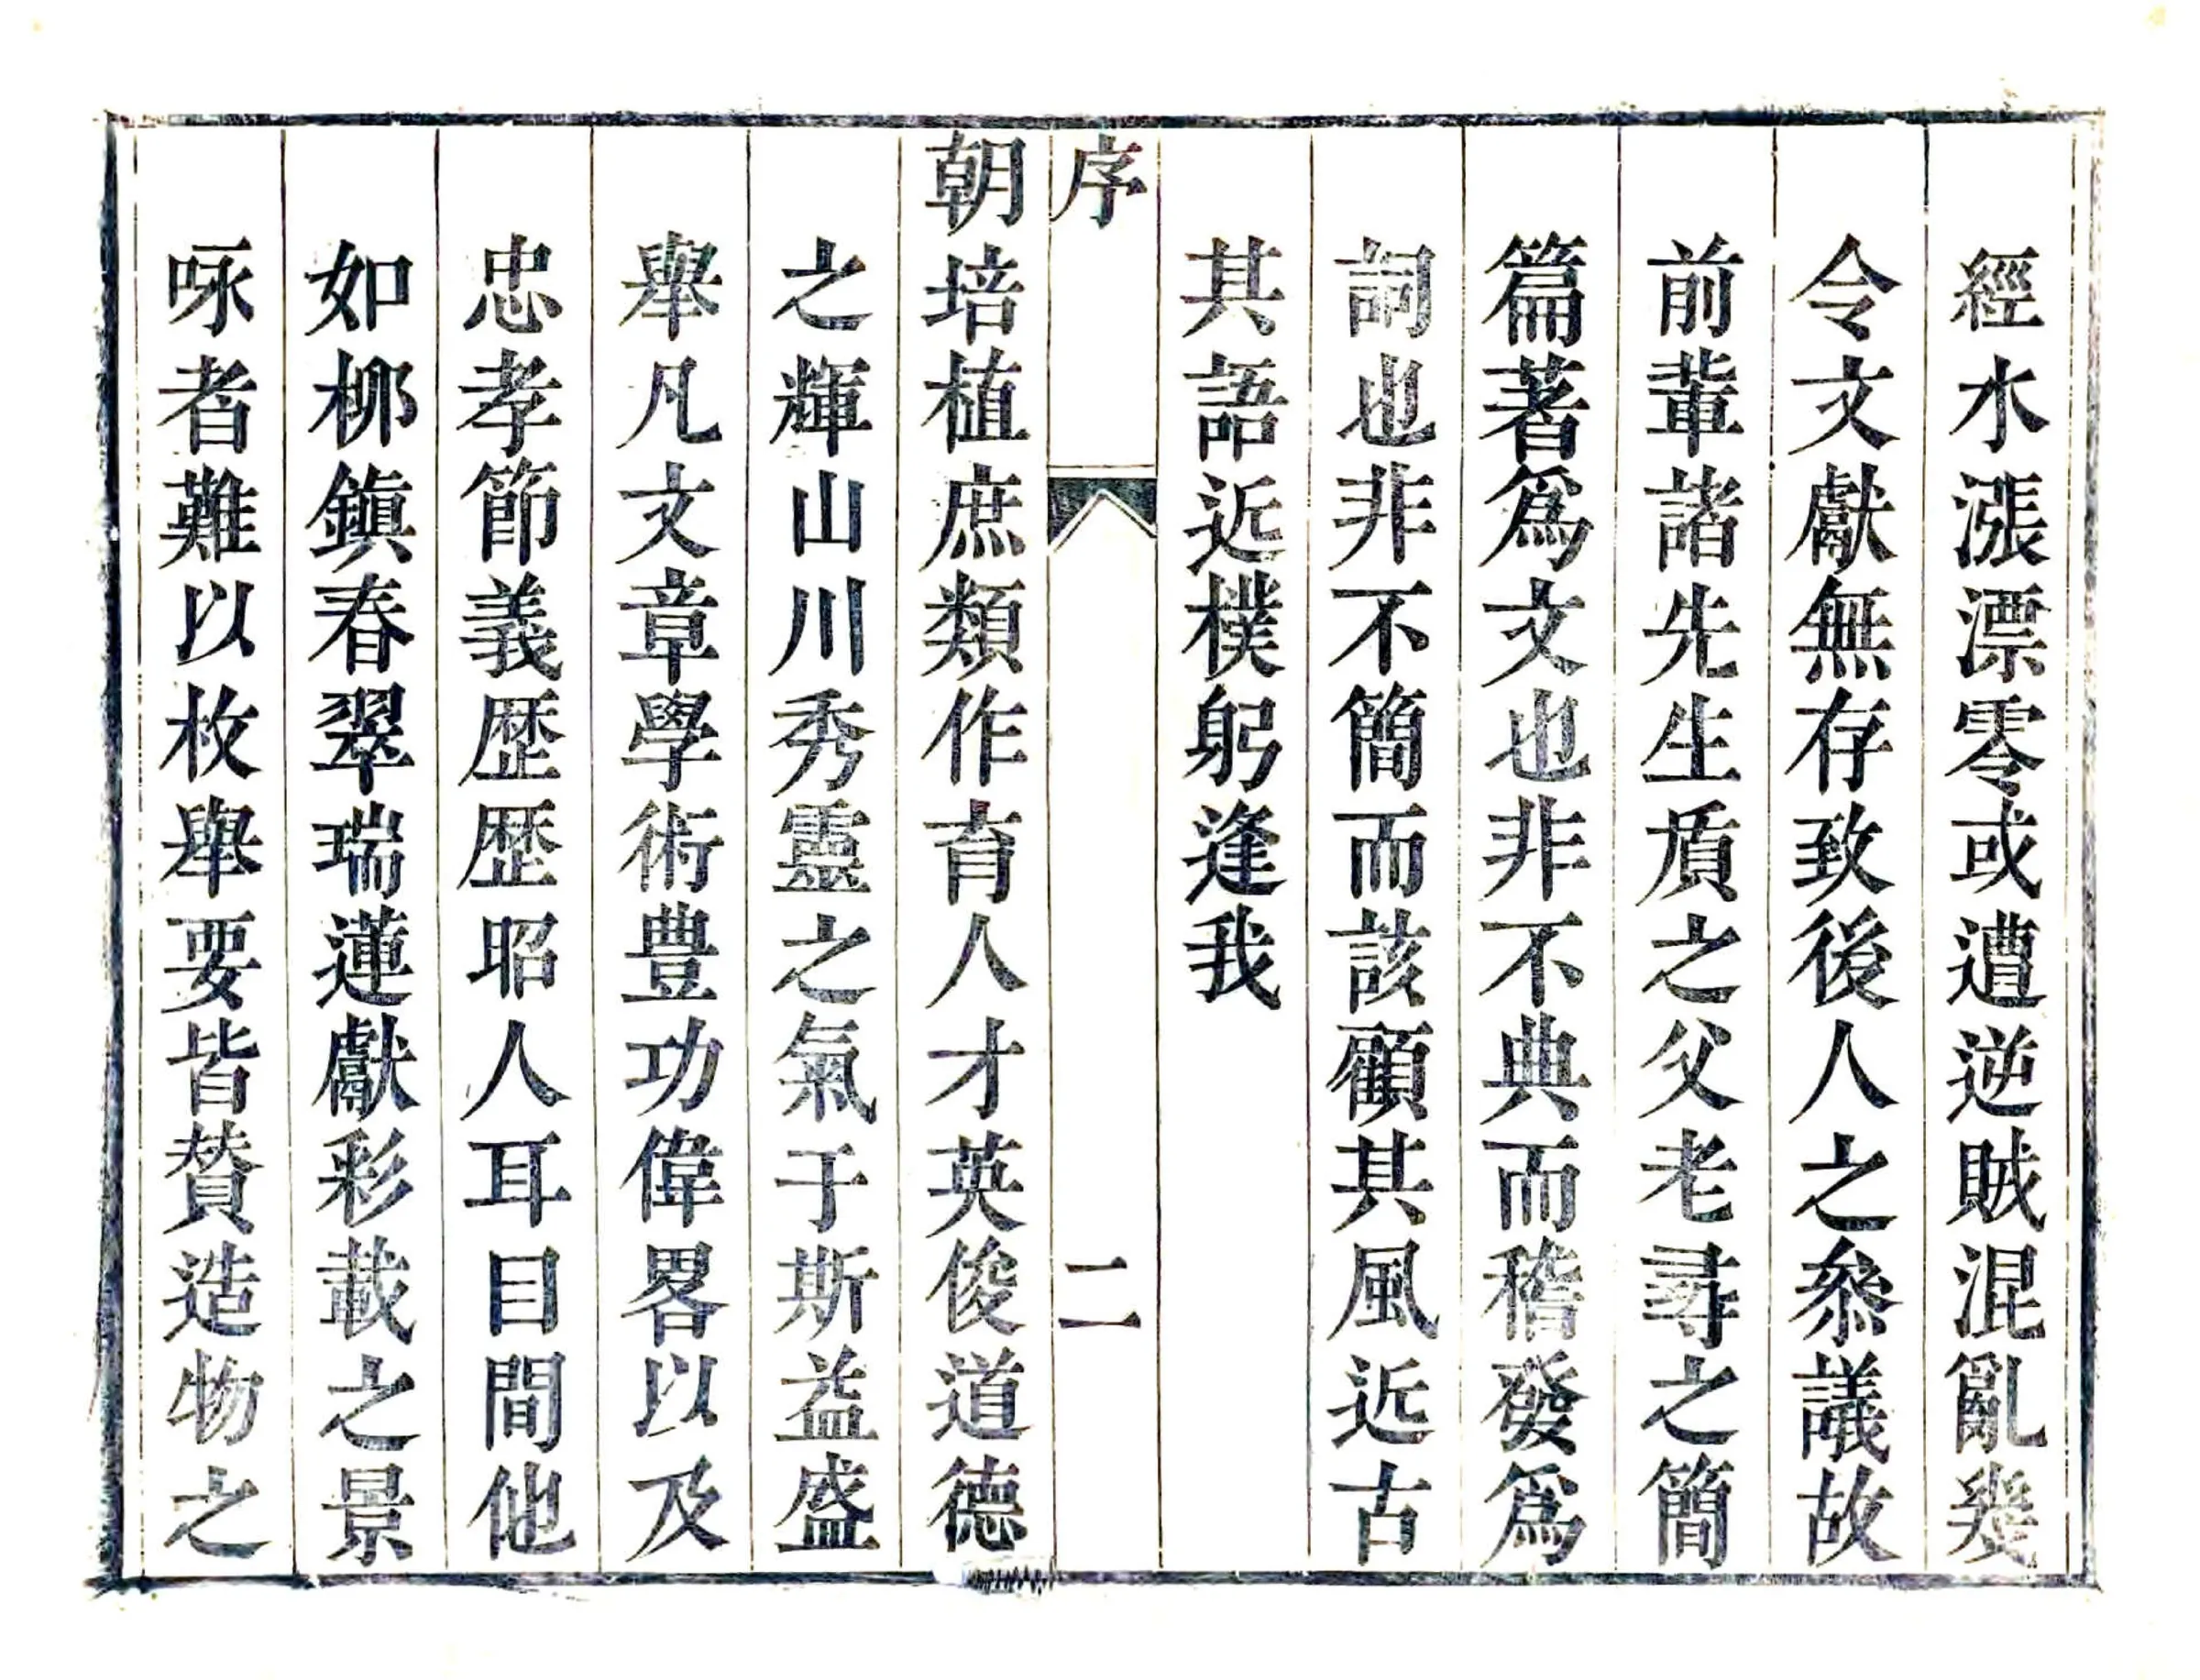 經水漲漂零或遭逆賊混亂幾
令文獻無存致後人之叅議故
前輩諸先生質之父老尋之簡
篇著爲文也非不典而稽發爲
詞也非不簡而該顧其風近古
其語近樸躬逢我
序
二
朝培植庶類作育人才英俊道德
之輝山川秀靈之氣于斯益盛
舉凡文章學術豊功偉畧以及
忠孝節義歴歴昭人耳目間他
如柳鎭春翠瑞蓮獻彩載之景
咏者難以枚舉要皆賛造物之